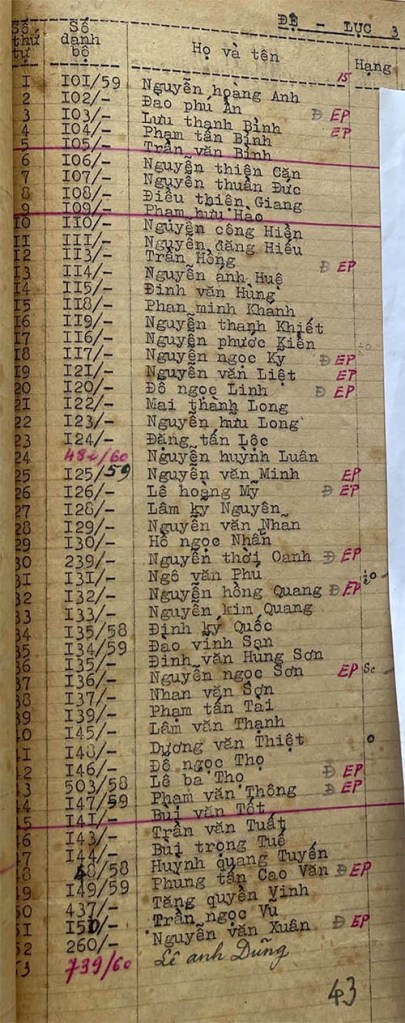 ĐỆ - LỤC 3
Số thứ tự | Số danh bộ | Họ và tên | Hạng
15
1 I0I/59 Nguyễn hoàng Anh
2 I02/- Đào phú Ấn
3 I03/- Lưu thanh Bình Đ EP
4 I04/- Phạm tấn Bình EP
5 I05/- Trần văn Bình
6 I06/- Nguyễn thiện Căn
7 I07/- Nguyễn thuần Đức
8 I08/- Điều thiên Giang
9 I09/- Phạm hữu Hào
10 II0/- Nguyễn công Hiền
11 III/- Nguyễn đăng Hiếu
12 II3/- Trần Hồng Đ EP
13 II4/- Nguyễn ánh Huệ
14 II5/- Đinh văn Hùng
15 II8/- Phan minh Khánh
16 II9/- Nguyễn thanh Khiết
17 II6/- Nguyễn phước Kiên
18 II7/- Nguyễn ngọc Ký Đ EP
19 I2I/- Nguyễn văn Liệt EP
20 I20/- Đỗ ngọc Linh Đ EP
21 I22/- Mai thành Long
22 I23/- Nguyễn hữu Long
23 I24/- Đặng tấn Lộc
24 /60 Nguyễn huỳnh Luân
25 I25/59 Nguyễn văn Minh EP
26 I26/- Lê hoàng Mỹ Đ EP
27 I28/- Lâm kỳ Nguyên
28 I29/- Nguyễn văn Nhan
29 I30/- Hồ ngọc Nhân
30 239/- Nguyễn thới Oanh Đ EP
31 I3I/- Ngô văn Phú
32 I32/- Nguyễn hồng Quang Đ EP
33 I33/- Nguyễn kim Quang
34 I35/58 Định kỳ Quốc
35 I34/59 Đào vinh Sơn
36 I35/- Đinh văn Hùng Sơn
37 I36/- Nguyễn ngọc Sơn EP
38 I37/- Nhan văn Sơn
39 I39/- Phạm tấn Tài
40 I45/- Lâm văn Thạnh
41 I40/- Dương văn Thiệt
42 I46/- Đỗ ngọc Thọ
43 503/58 Lê bá Thọ Đ EP
44 I47/59 Phạm văn Thông Đ EP
45 I4I/- Bùi văn Tốt
46 I43/- Trần văn Tuất
47 I44/- Bùi trọng Tuế
48 /58 Huỳnh quang Tuyến
49 I49/59 Phung tấn Cao Văn Đ EP
50 437/- Tăng quyền Vinh
51 I50/- Trần ngọc Vũ
52 260/- Nguyễn văn Xuân Đ EP
53 739/60 Lê anh Dũng
43